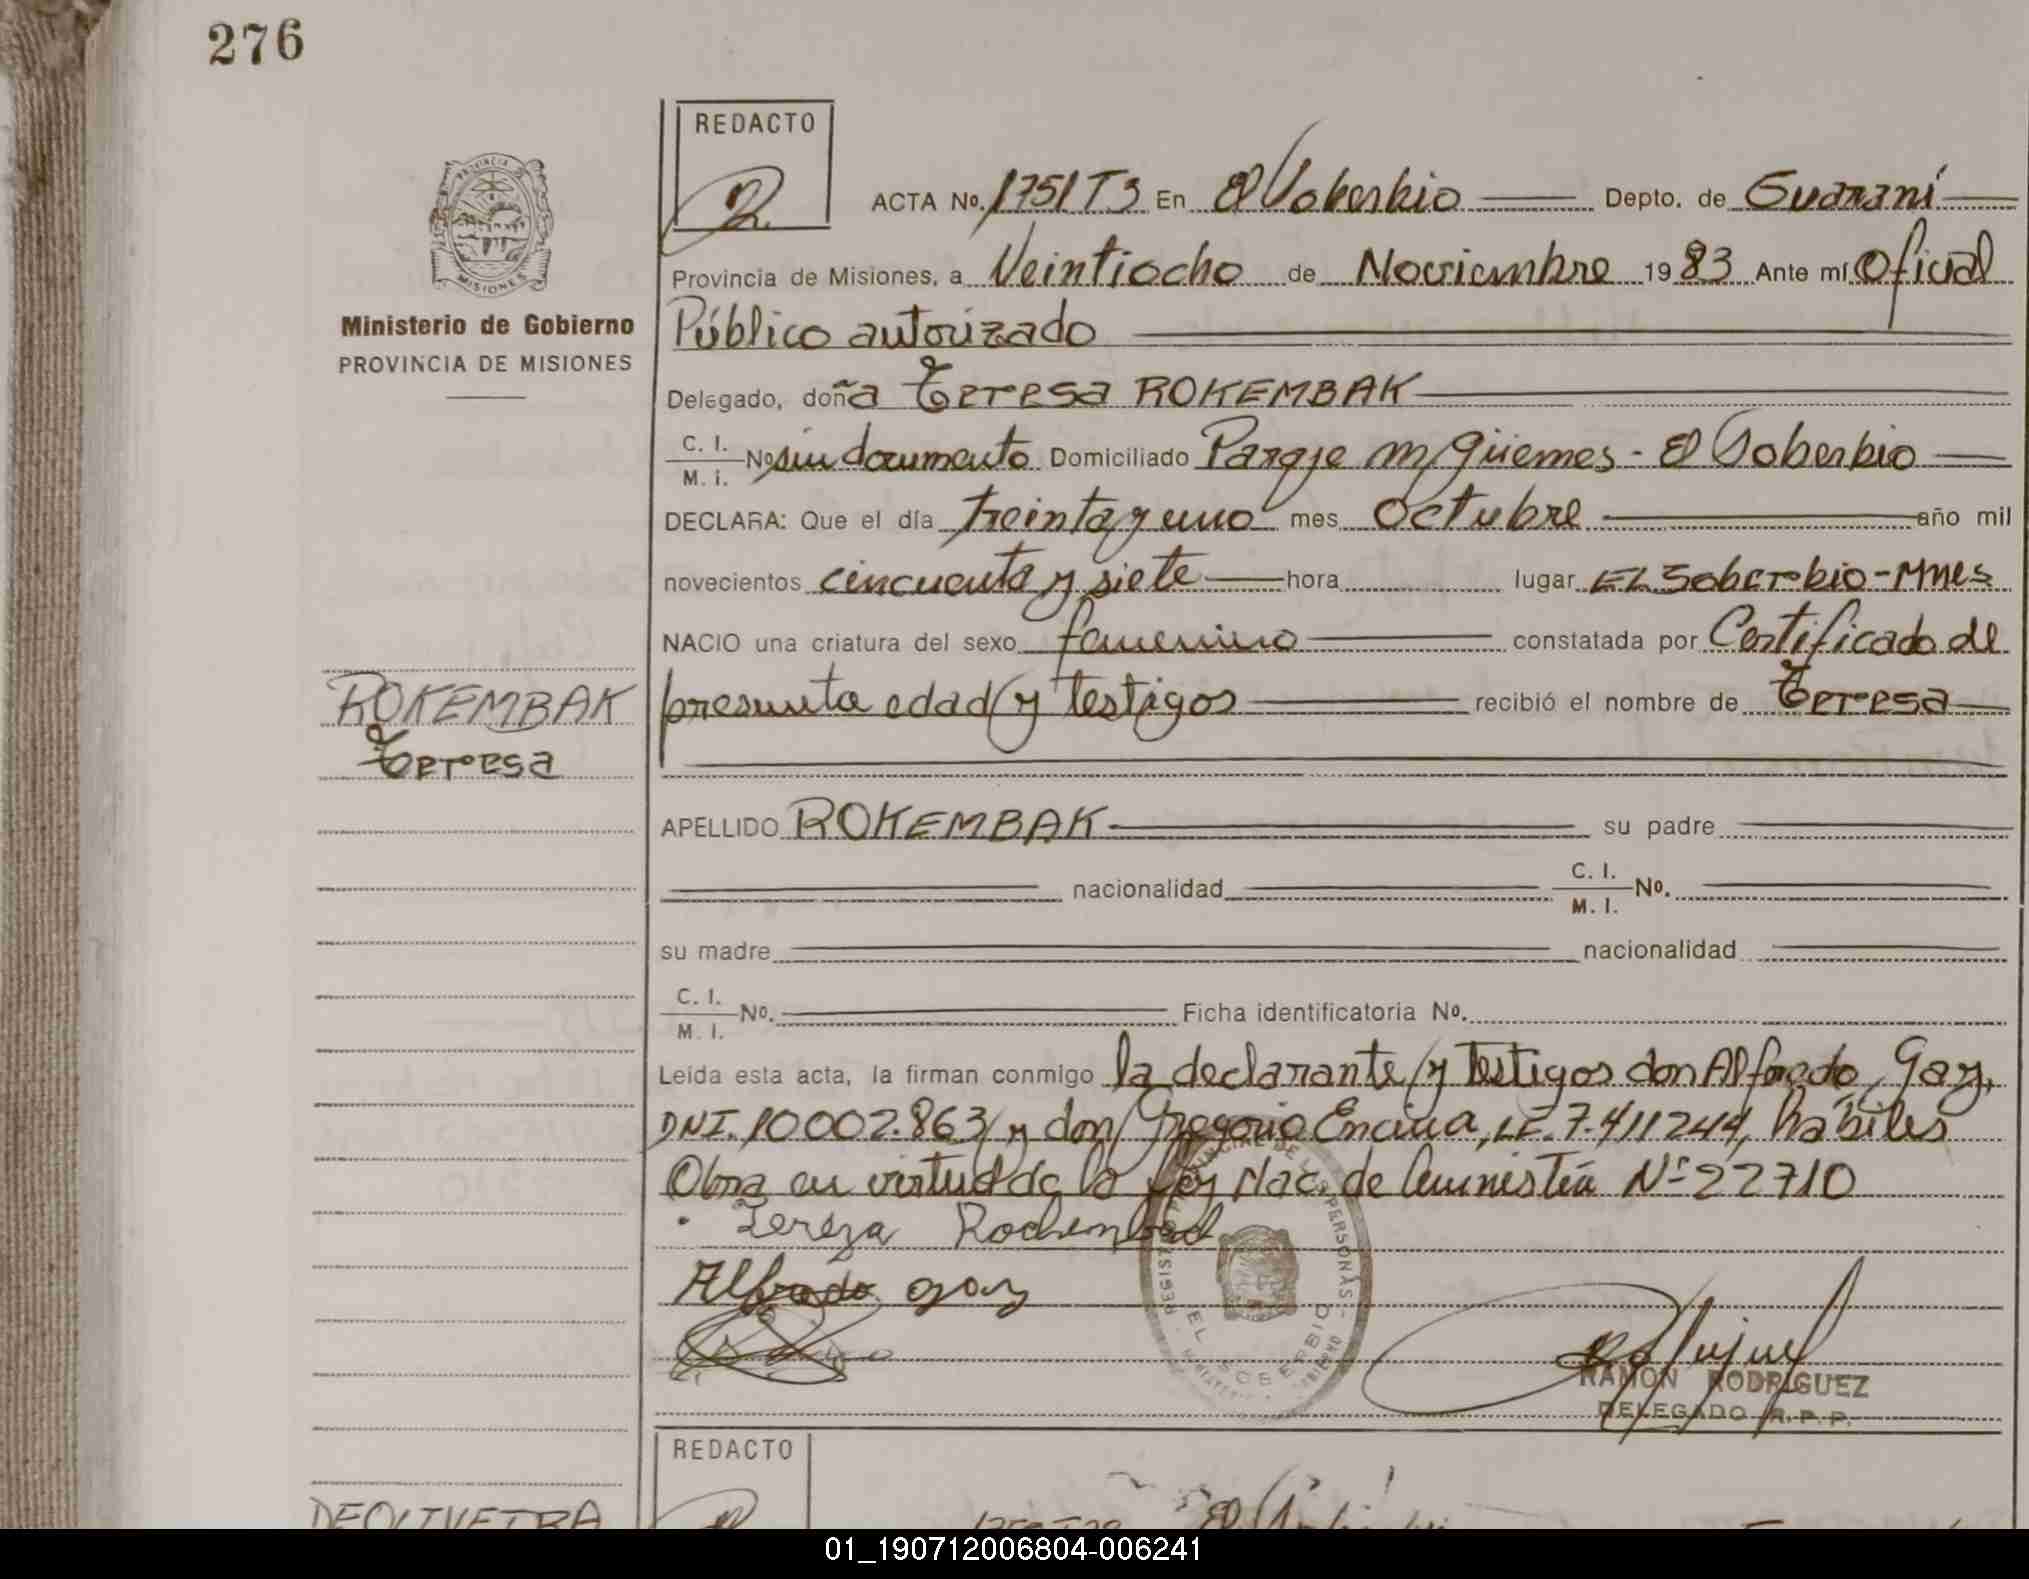 276
REDACTO
ACTA No. 1751 T3 En El Soberbio Depto. de Guaraní
Provincia de Misiones, a Veintiocho de Noviembre 1983 Ante mí Oficial
Público autorizado
Ministerio de Gobierno
PROVINCIA DE MISIONES
Delegado, doña Teresa ROKEMBAK
C. I.
M. i. No sin documento Domiciliado Paraje M/Güemes - El Soberbio
DECLARA: Que el día treinta y uno mes Octubre año mil
novecientos cincuenta y siete hora lugar EL Soberbio - Mnes
NACIO una criatura del sexo femenino constatada por Certificado de
presunta edad y testigos recibió el nombre de Teresa
ROKEMBAK
Teresa
APELLIDO ROKEMBAK su padre
nacionalidad C. I.
M. I. No.
su madre nacionalidad
C. I.
M. I. No. Ficha identificatoria No.
Leída esta acta, la firman conmigo la declarante y testigos don Alfredo Gay,
DNI. 10002.863 y don Gregorio Encina, LE. 7.411244, hábiles
Obra en virtud de la Ley Nac. de Amnistía Nº 22710
Tereza Rochembak
Alfredo gay
EL SOBERBIO
RAMON RODRIGUEZ
DELEGADO R. P. P.
REDACTO
DEOLIVEIRA
01_190712006804-006241